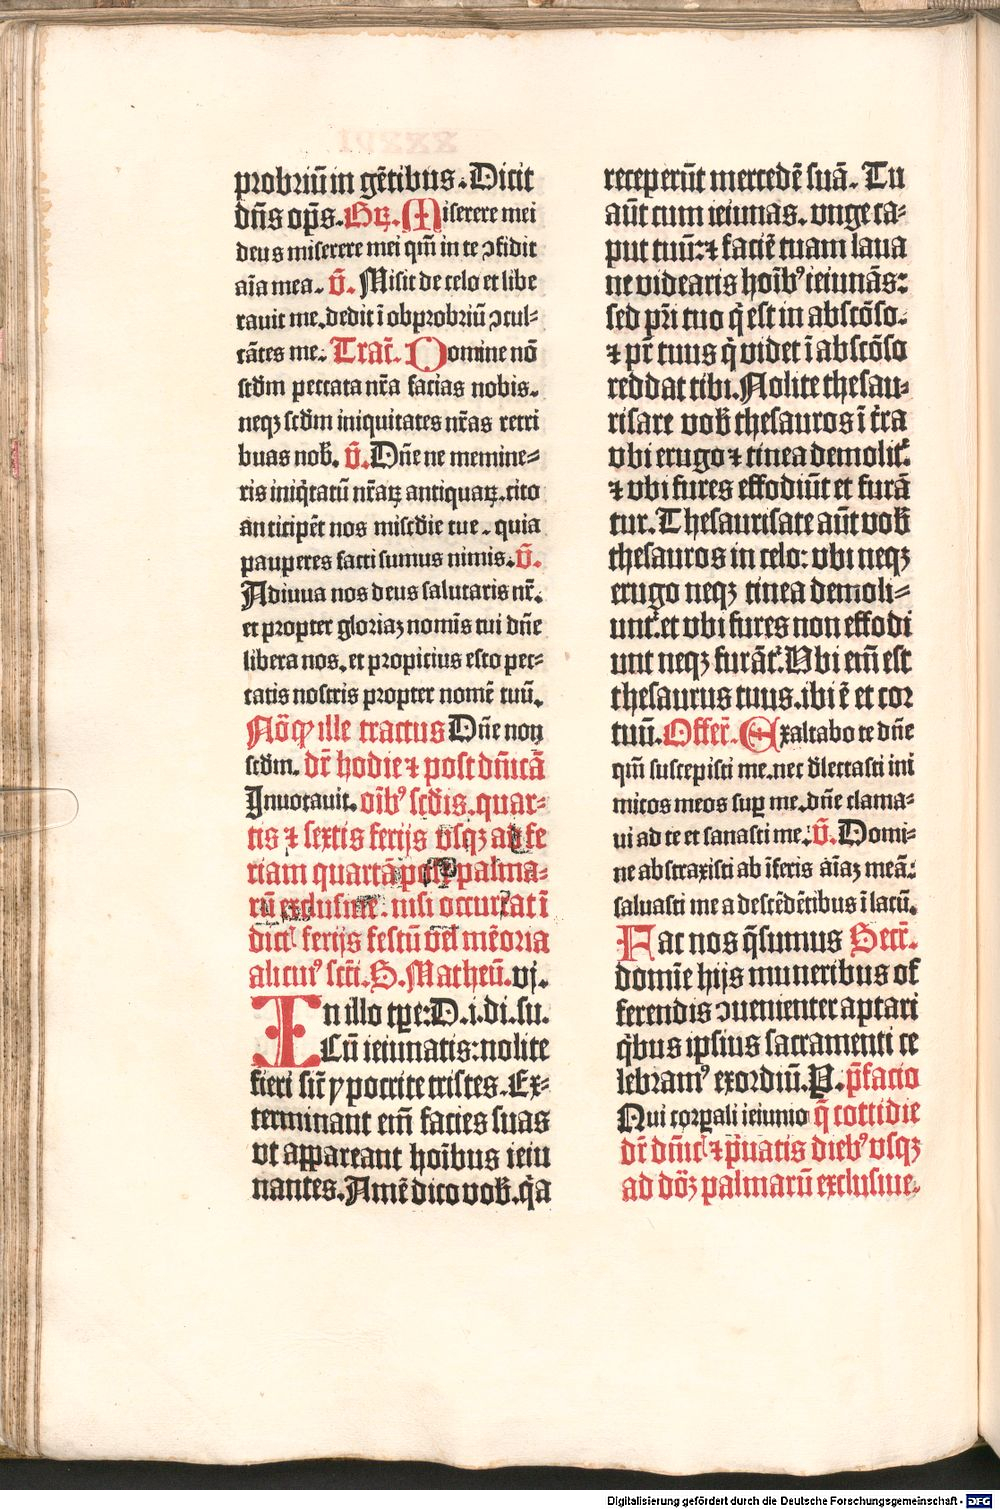 probriū in gētibus. Dicit
dn̄s op̄s. Grꝫ. Miserere mei
deus miserere mei qm̄ in te ↄfidit
aīa mea. v̄. Misit de celo et libe
rauit me. dedit ī obprobriū ↄcul⸗
cātes me. Trac̄. Domine nō
scd̄m peccata nr̄a facias nobis.
neqꝫ scd̄m iniquitates nr̄as retri
buas nob̄. v̄. Dn̄e ne memine⸗
ris iniq̄tatū nr̄aꝝ antiquaꝝ. cito
anticipēt nos miscd̄ie tue. quia
pauperes facti sumus nimis. v̄.
Adiuua nos deus salutaris nr̄.
et propter gloriaꝫ nomīs tui dn̄e
libera nos. et propicius esto pec⸗
catis nostris propter nomē tuū.
Nō ꝙ ille tractus Dn̄e non
scd̄m. dr̄ hodie ⁊ post dn̄icā
Inuocauit. oīb⁹ scd̄is. quar⸗
tis ⁊ sextis ferijs vsqꝫ ad fe
riam quartā post palma⸗
rū exclusiue. nisi occurrat ī
dict⁹ ferijs festū vel mēoria
alicui⁹ scī. S. Matheū. vj.
In illo tꝑe: D. i. di. su.
Cū ieiunatis: nolite
fieri sic̄ ypocrite tristes. Ex⸗
terminant em̄ facies suas
vt appareant hoīibus ieiu
nantes. Amē dico vob̄. q̄a
receperūt mercedē suā. Tu
aūt cum ieiunas. vnge ca⸗
put tuū: ⁊ faciē tuam laua
ne videaris hoīb⁹ ieiunās:
sed pr̄i tuo q̄ est in abscōso.
⁊ pr̄ tuus q̄ videt ī abscōso
reddat tibi. Nolite thesau⸗
risare vob̄ thesauros ī t̄ra
vbi erugo ⁊ tinea demolit̄.
⁊ vbi fures effodiūt et furā
tur. Thesaurisate aūt vob̄
thesauros in celo: vbi neqꝫ
erugo neqꝫ tinea demoli⸗
unt̄. et vbi fures non effodi
unt neqꝫ furāt̄. Vbi em̄ est
thesaurus tuus. ibi ē et cor
tuū. Offer̄. Exaltabo te dn̄e
qm̄ suscepisti me. nec d̄lectasti ini
micos meos suꝑ me. dn̄e clama⸗
ui ad te et sanasti me. v̄. Domi⸗
ne abstraxisti ab īferis aīaꝫ meā:
saluasti me a descēdētibus ī lacū.
Fac nos q̄sumus Secr̄.
domīe hijs muneribus of
ferendis ↄuenienter aptari
q̄bus ipsius sacramenti ce
lebram⁹ exordiū. P. p̄facio
Qui corꝑali ieiunio q̄ cottidie
dr̄ dn̄ic⁹ ⁊ p̄uatis dieb⁹ vsqꝫ
ad dōꝫ palmarū exclusiue.
Digitalisierung gefördert durch die Deutsche Forschungsgemeinschaft - DFG